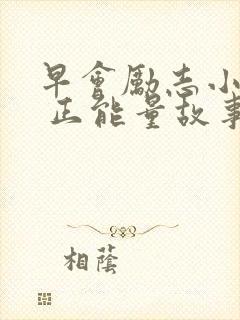 早會勵志小
正能量故事
相蔭